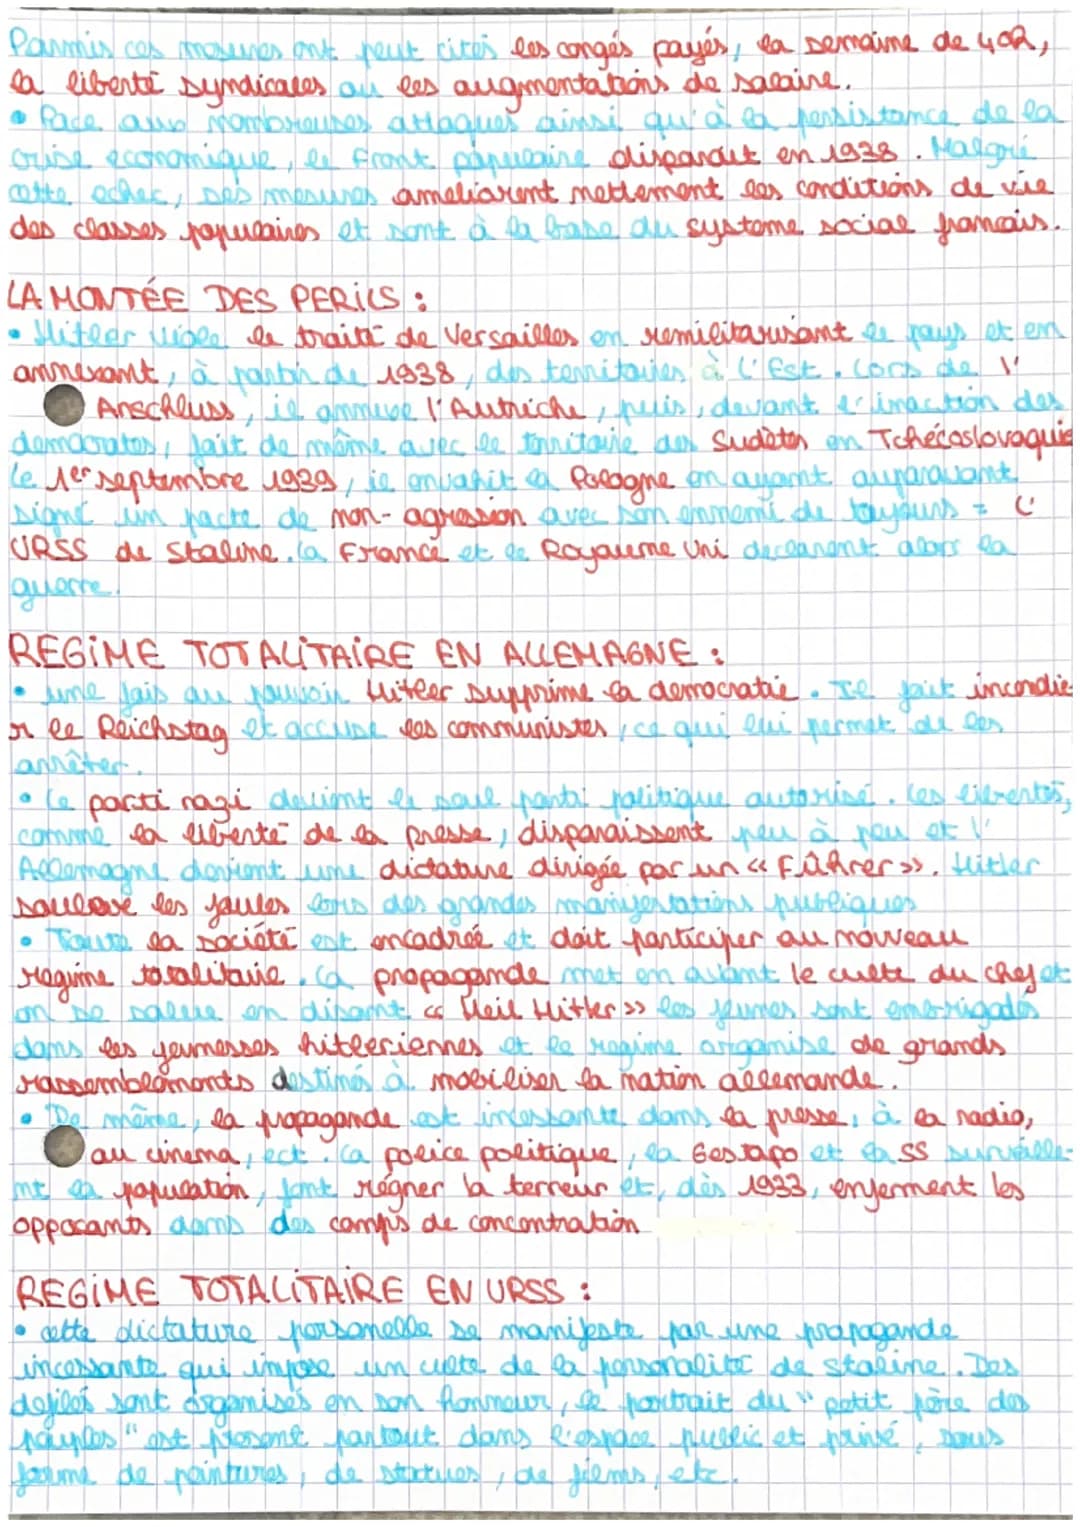 Parmis ces mesures ont peut citer les congés payés, la semaine de 40h,
la liberté syndicales ou les augmentations de salaire.
• Face aux nombreuses attaques ainsi qu'à la persistance de la
crise economique, le Front populaire disparait en 1938. Malgré
cette echec, ses mesures ameliorent nettement les conditions de vie
des classes populaires et sont à la base du systeme social francais.
LA MONTÉE DES PERILS :
• Hitler viole le traité de Versailles en remilitarisant le pays et en
annexant, à partir de 1938, des territoires à l'Est. Lors de l'
Anschluss, il annexe l'Autriche, puis, devant l'inaction des
democraties, fait de même avec le territoire des Sudètes en Tchécoslovaquie
Le 1er septembre 1939, il envahit la Pologne en ayant auparavant
signé un pacte de non-agression avec son ennemi de toujours = l'
URSS de Staline. La France et le Royaume Uni declarent alors la
guerre.
REGIME TOTALITAIRE EN ALLEMAGNE :
• une fois au pouvoir Hitler supprime la democratie. Il fait incendie
r le Reichstag et accuse les communistes, ce qui lui permet de les
arrêter.
• Le parti nazi devient le seul parti politique autorisé. Les libertés,
comme la liberté de la presse, disparaissent peu à peu et l'
Allemagne devient une dictature dirigée par un « Führer ». Hitler
souleve les foules lors des grandes manifestations publiques
• Toute la société est encadrée et doit participer au nouveau
regime totalitaire. La propagande met en avant le culte du chef et
on se salue en disant « Heil Hitler » les jeunes sont embrigadés
dans les jeunesses hitleriennes et le regime organise de grands
rassemblements destinés à mobiliser la nation allemande.
• De même, la propagande est incessante dans la presse, à la radio,
au cinema, ect. La police politique, la Gestapo et la SS surveille-
nt la population, font régner la terreur et, dès 1933, enferment les
opposants dans des camps de concentration
REGIME TOTALITAIRE EN URSS :
• cette dictature personelle se manifeste par une propagande
incessante qui impose un culte de la personalité de Staline. Des
defilés sont organisés en son honneur, le portrait du " petit père des
peuples " est present partout dans l'espace public et privé, sous
forme de peintures, de statues, de films, etc.